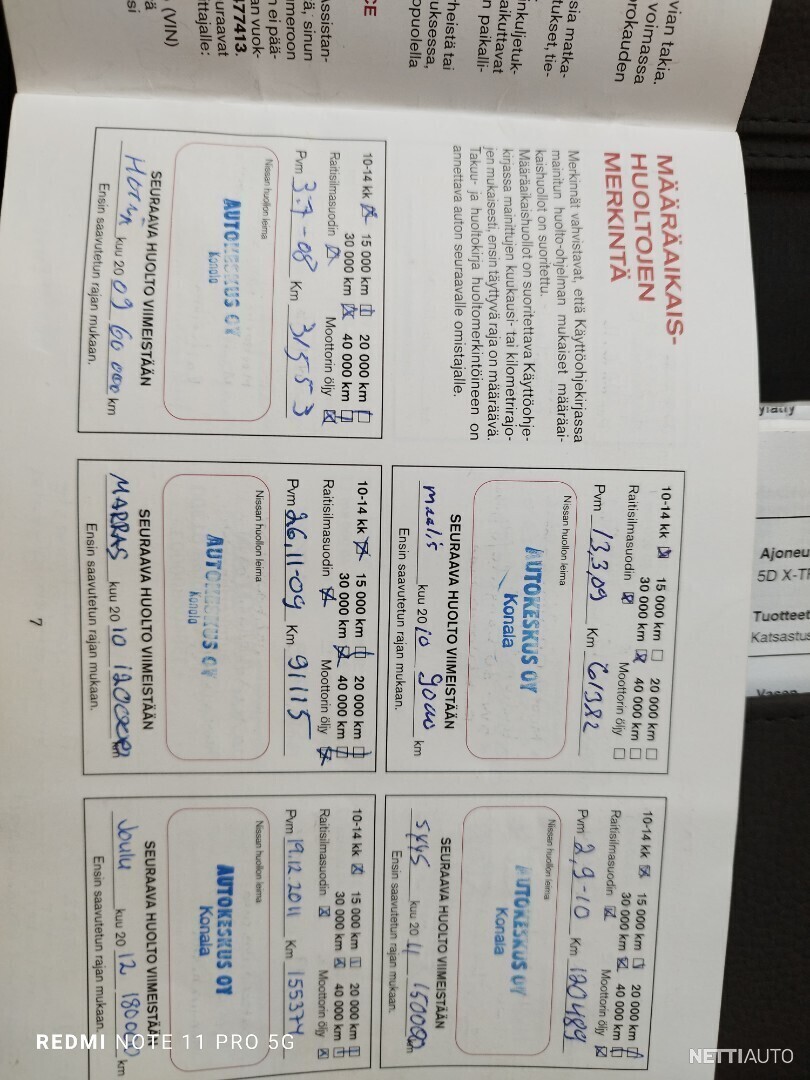 vian takia.
voimassa
rokauden
sia matka-
tukset, tie-
inkuljetuk-
aikuttavat
n paikalli-
rheistä tai
uksessa,
opuolella
CE
Assistan-
tä, sinun
umeroon
n ei pää-
477413.
an vuok-
uraavat
ittajalle:
(VIN)
MÄÄRÄAIKAIS-
HUOLTOJEN
MERKINTÄ
Merkinnät vahvistavat, että Käyttöohjekirjassa
mainitun huolto-ohjelman mukaiset määräai-
kaishuollot on suoritettu.
Määräaikaishuollot on suoritettava Käyttöohje-
kirjassa mainittujen kuukausi- tai kilometrirajo-
jen mukaisesti, ensin täyttyvä raja on määräävä.
Takuu- ja huoltokirja huoltomerkintöineen on
annettava auton seuraavalle omistajalle.
10-14 kk 15 000 km 20 000 km
30 000 km 40 000 km
Raitisilmasuodin Moottorin öljy
Pvm 3.7-08 Km 31553
Nissan huollon leima
AUTOKESKUS OY
Konala
SEURAAVA HUOLTO VIIMEISTÄÄN
kuu 20 09 60 000 km
Ensin saavutetun rajan mukaan.
10-14 kk 15 000 km 20 000 km
30 000 km 40 000 km
Raitisilmasuodin Moottorin öljy
Pvm 13,3,09 Km 61382
Nissan huollon leima
AUTOKESKUS OY
Konala
SEURAAVA HUOLTO VIIMEISTÄÄN
maalis kuu 20 10 90000 km
Ensin saavutetun rajan mukaan.
10-14 kk 15 000 km 20 000 km
30 000 km 40 000 km
Raitisilmasuodin Moottorin öljy
Pvm 26,11-09 Km 91115
Nissan huollon leima
AUTOKESKUS OY
Konala
SEURAAVA HUOLTO VIIMEISTÄÄN
MARRAS kuu 20 10 120000 km
Ensin saavutetun rajan mukaan.
10-14 kk 15 000 km 20 000 km
30 000 km 40 000 km
Raitisilmasuodin Moottorin öljy
Pvm 2,9-10 Km 120489
Nissan huollon leima
AUTOKESKUS OY
Konala
SEURAAVA HUOLTO VIIMEISTÄÄN
SYYS kuu 20 11 150000 km
Ensin saavutetun rajan mukaan.
10-14 kk 15 000 km 20 000 km
30 000 km 40 000 km
Raitisilmasuodin Moottorin öljy
Pvm 19.12.2011 Km 155374
Nissan huollon leima
AUTOKESKUS OY
Konala
SEURAAVA HUOLTO VIIMEISTÄÄN
Joulu kuu 20 12 180000 km
Ensin saavutetun rajan mukaan.
7
Ajoneu
5D X-TR
Tuotteet
Katsastus
REDMI NOTE 11 PRO 5G
NETTIAUTO